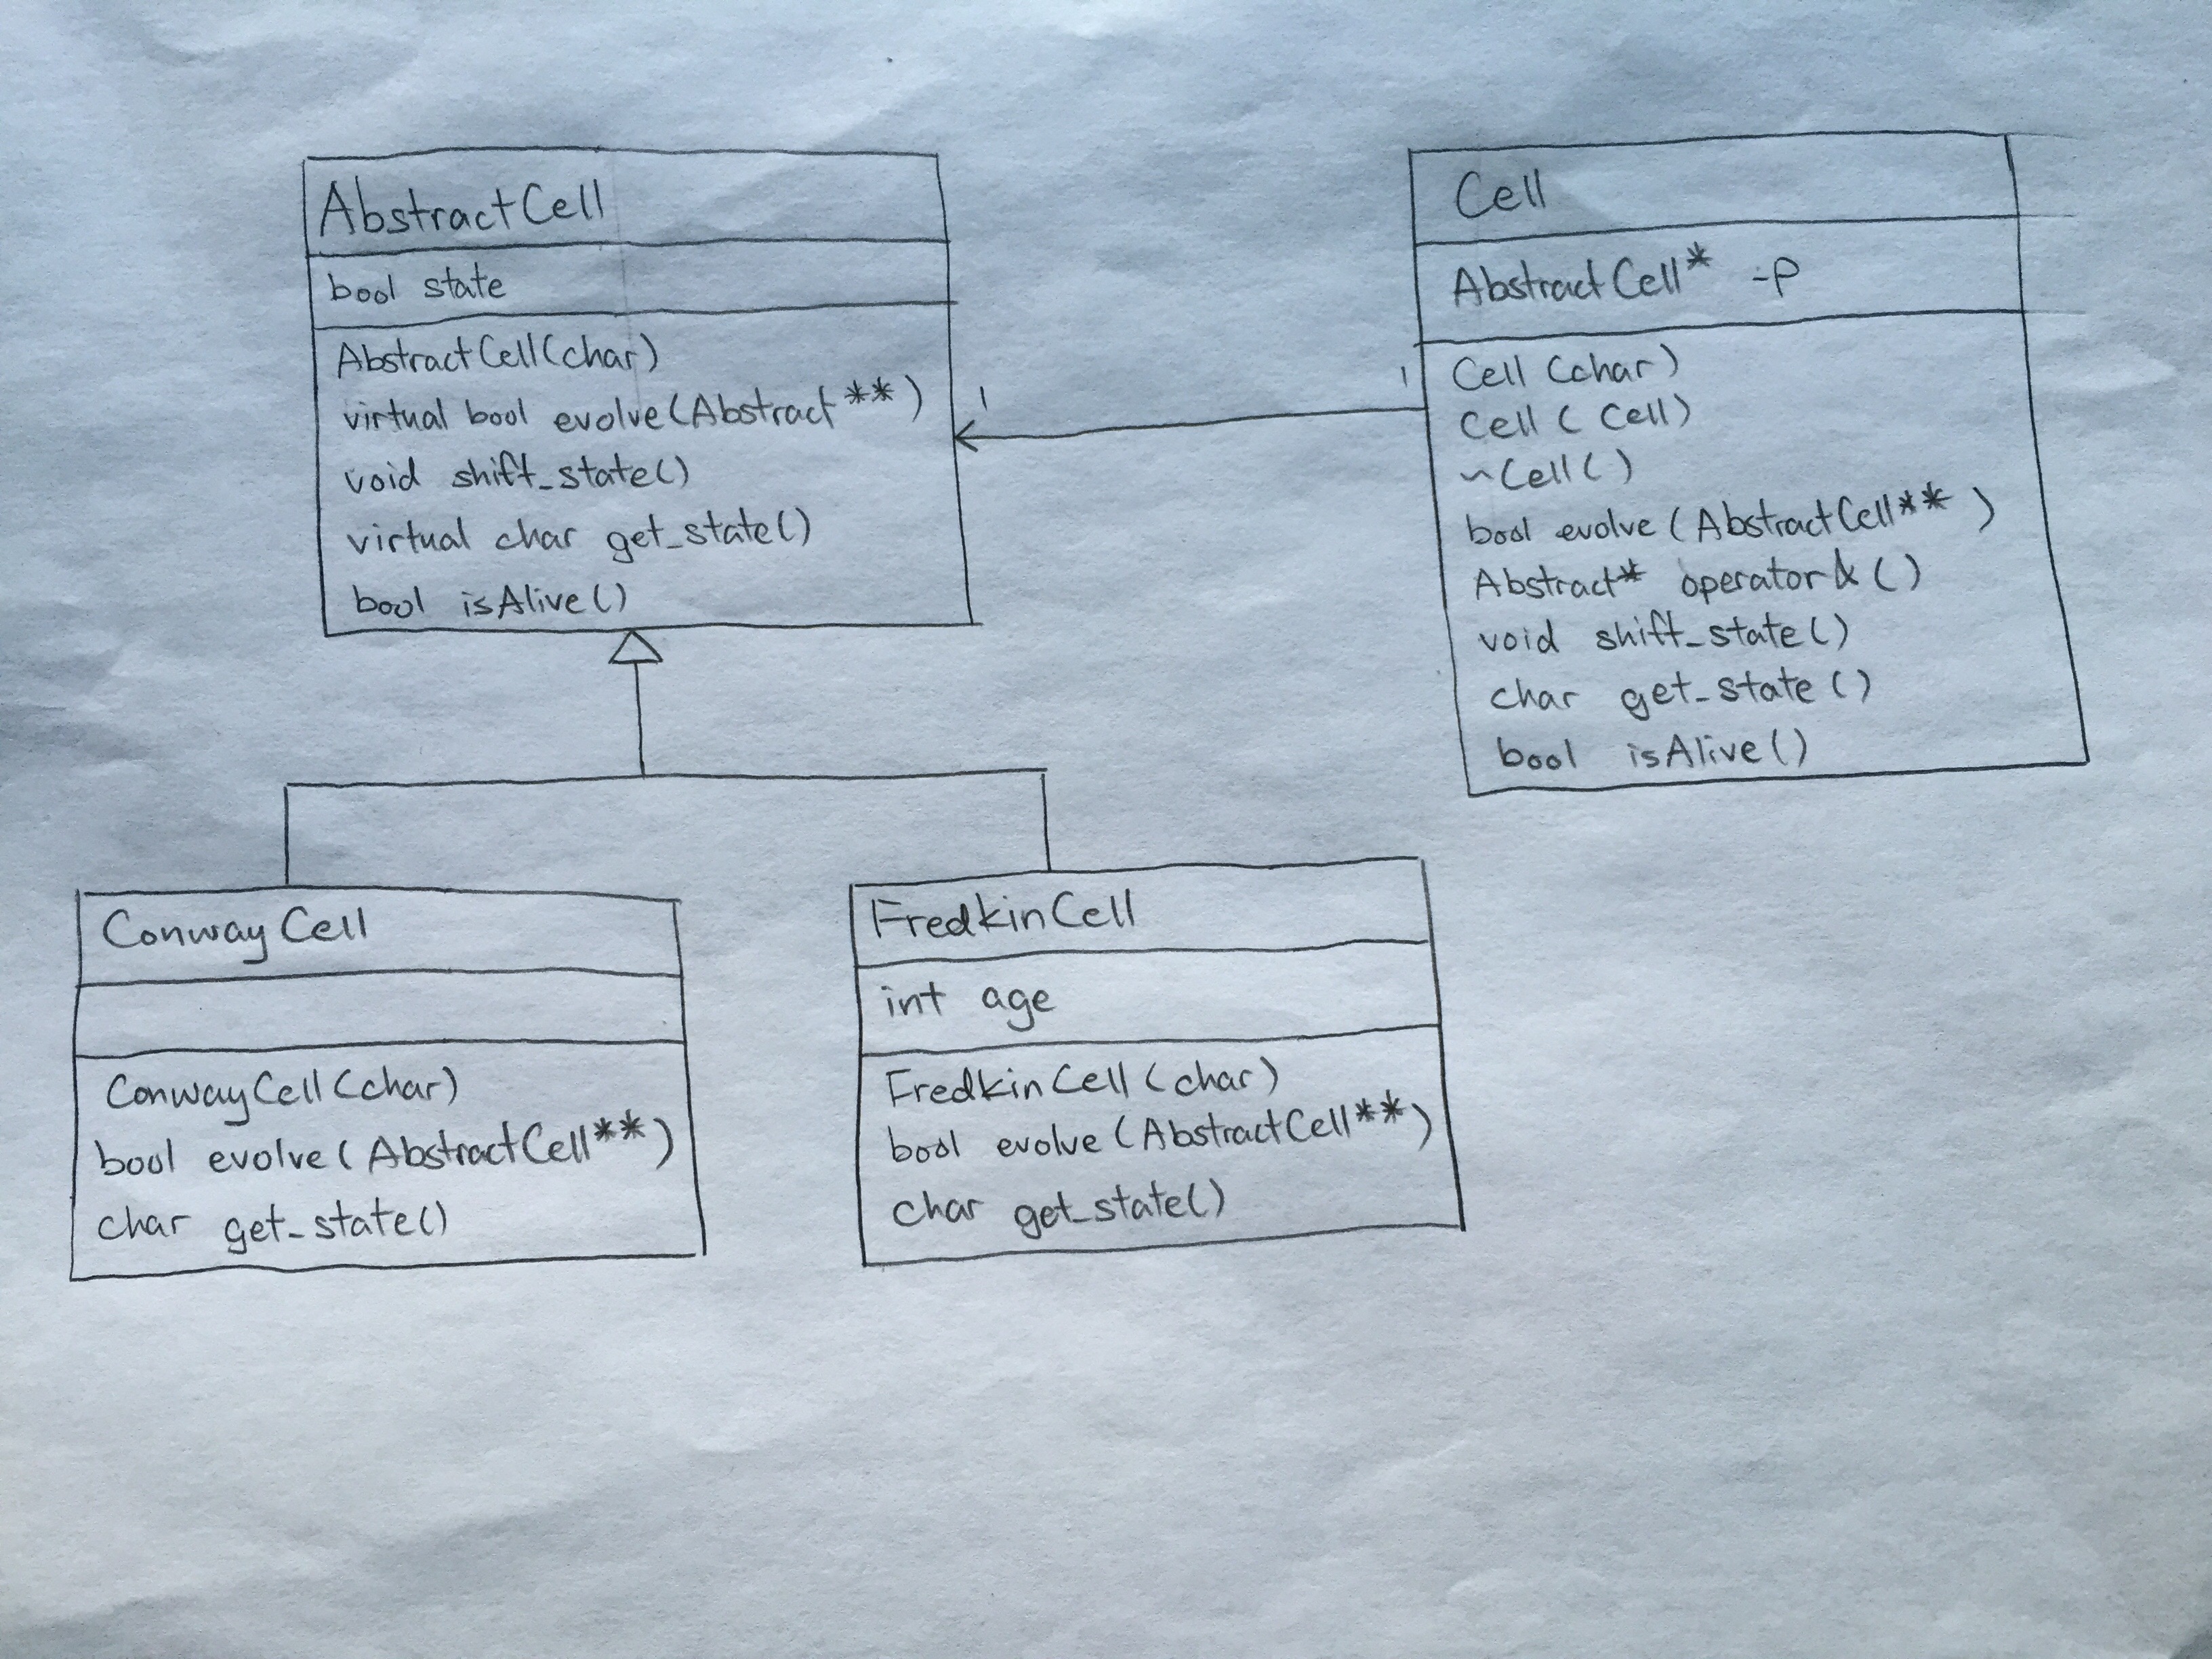 AbstractCell
bool state
AbstractCell(char)
virtual bool evolve(Abstract**)
void shift_state()
virtual char get_state()
bool isAlive()
1
1
Cell
AbstractCell* -p
Cell (char)
Cell ( Cell)
~Cell()
bool evolve (AbstractCell**)
Abstract* operator& ()
void shift_state()
char get_state ()
bool isAlive()
ConwayCell
ConwayCell(char)
bool evolve(AbstractCell**)
char get_state()
FredkinCell
int age
FredkinCell (char)
bool evolve (AbstractCell**)
char get_state()